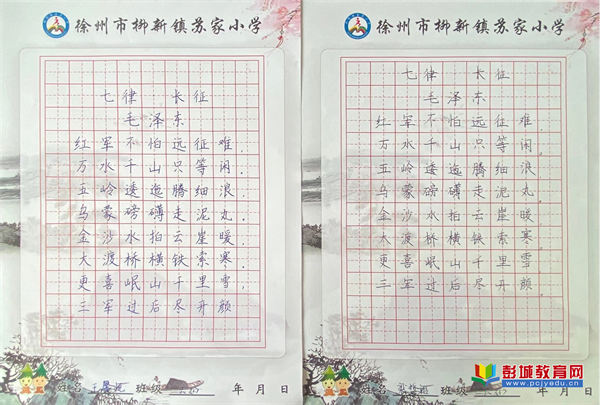 徐州市柳新镇苏家小学
七律 长征
毛泽东
红军不怕远征难,
万水千山只等闲.
五岭逶迤腾细浪,
乌蒙磅礴走泥丸.
金沙水拍云崖暖,
大渡桥横铁索寒.
更喜岷山千里雪,
三军过后尽开颜
姓名 班级 年 月 日
徐州市柳新镇苏家小学
七律 长征
毛泽东
红军不怕远征难
万水千山只等闲.
五岭逶迤腾细浪
乌蒙磅礴走泥丸.
金沙水拍云崖暖
大渡桥横铁索寒.
更喜岷山千里雪
三军过后尽开颜.
姓名 班级 年 月 日
彭城教育网
www.pcjyedu.cn